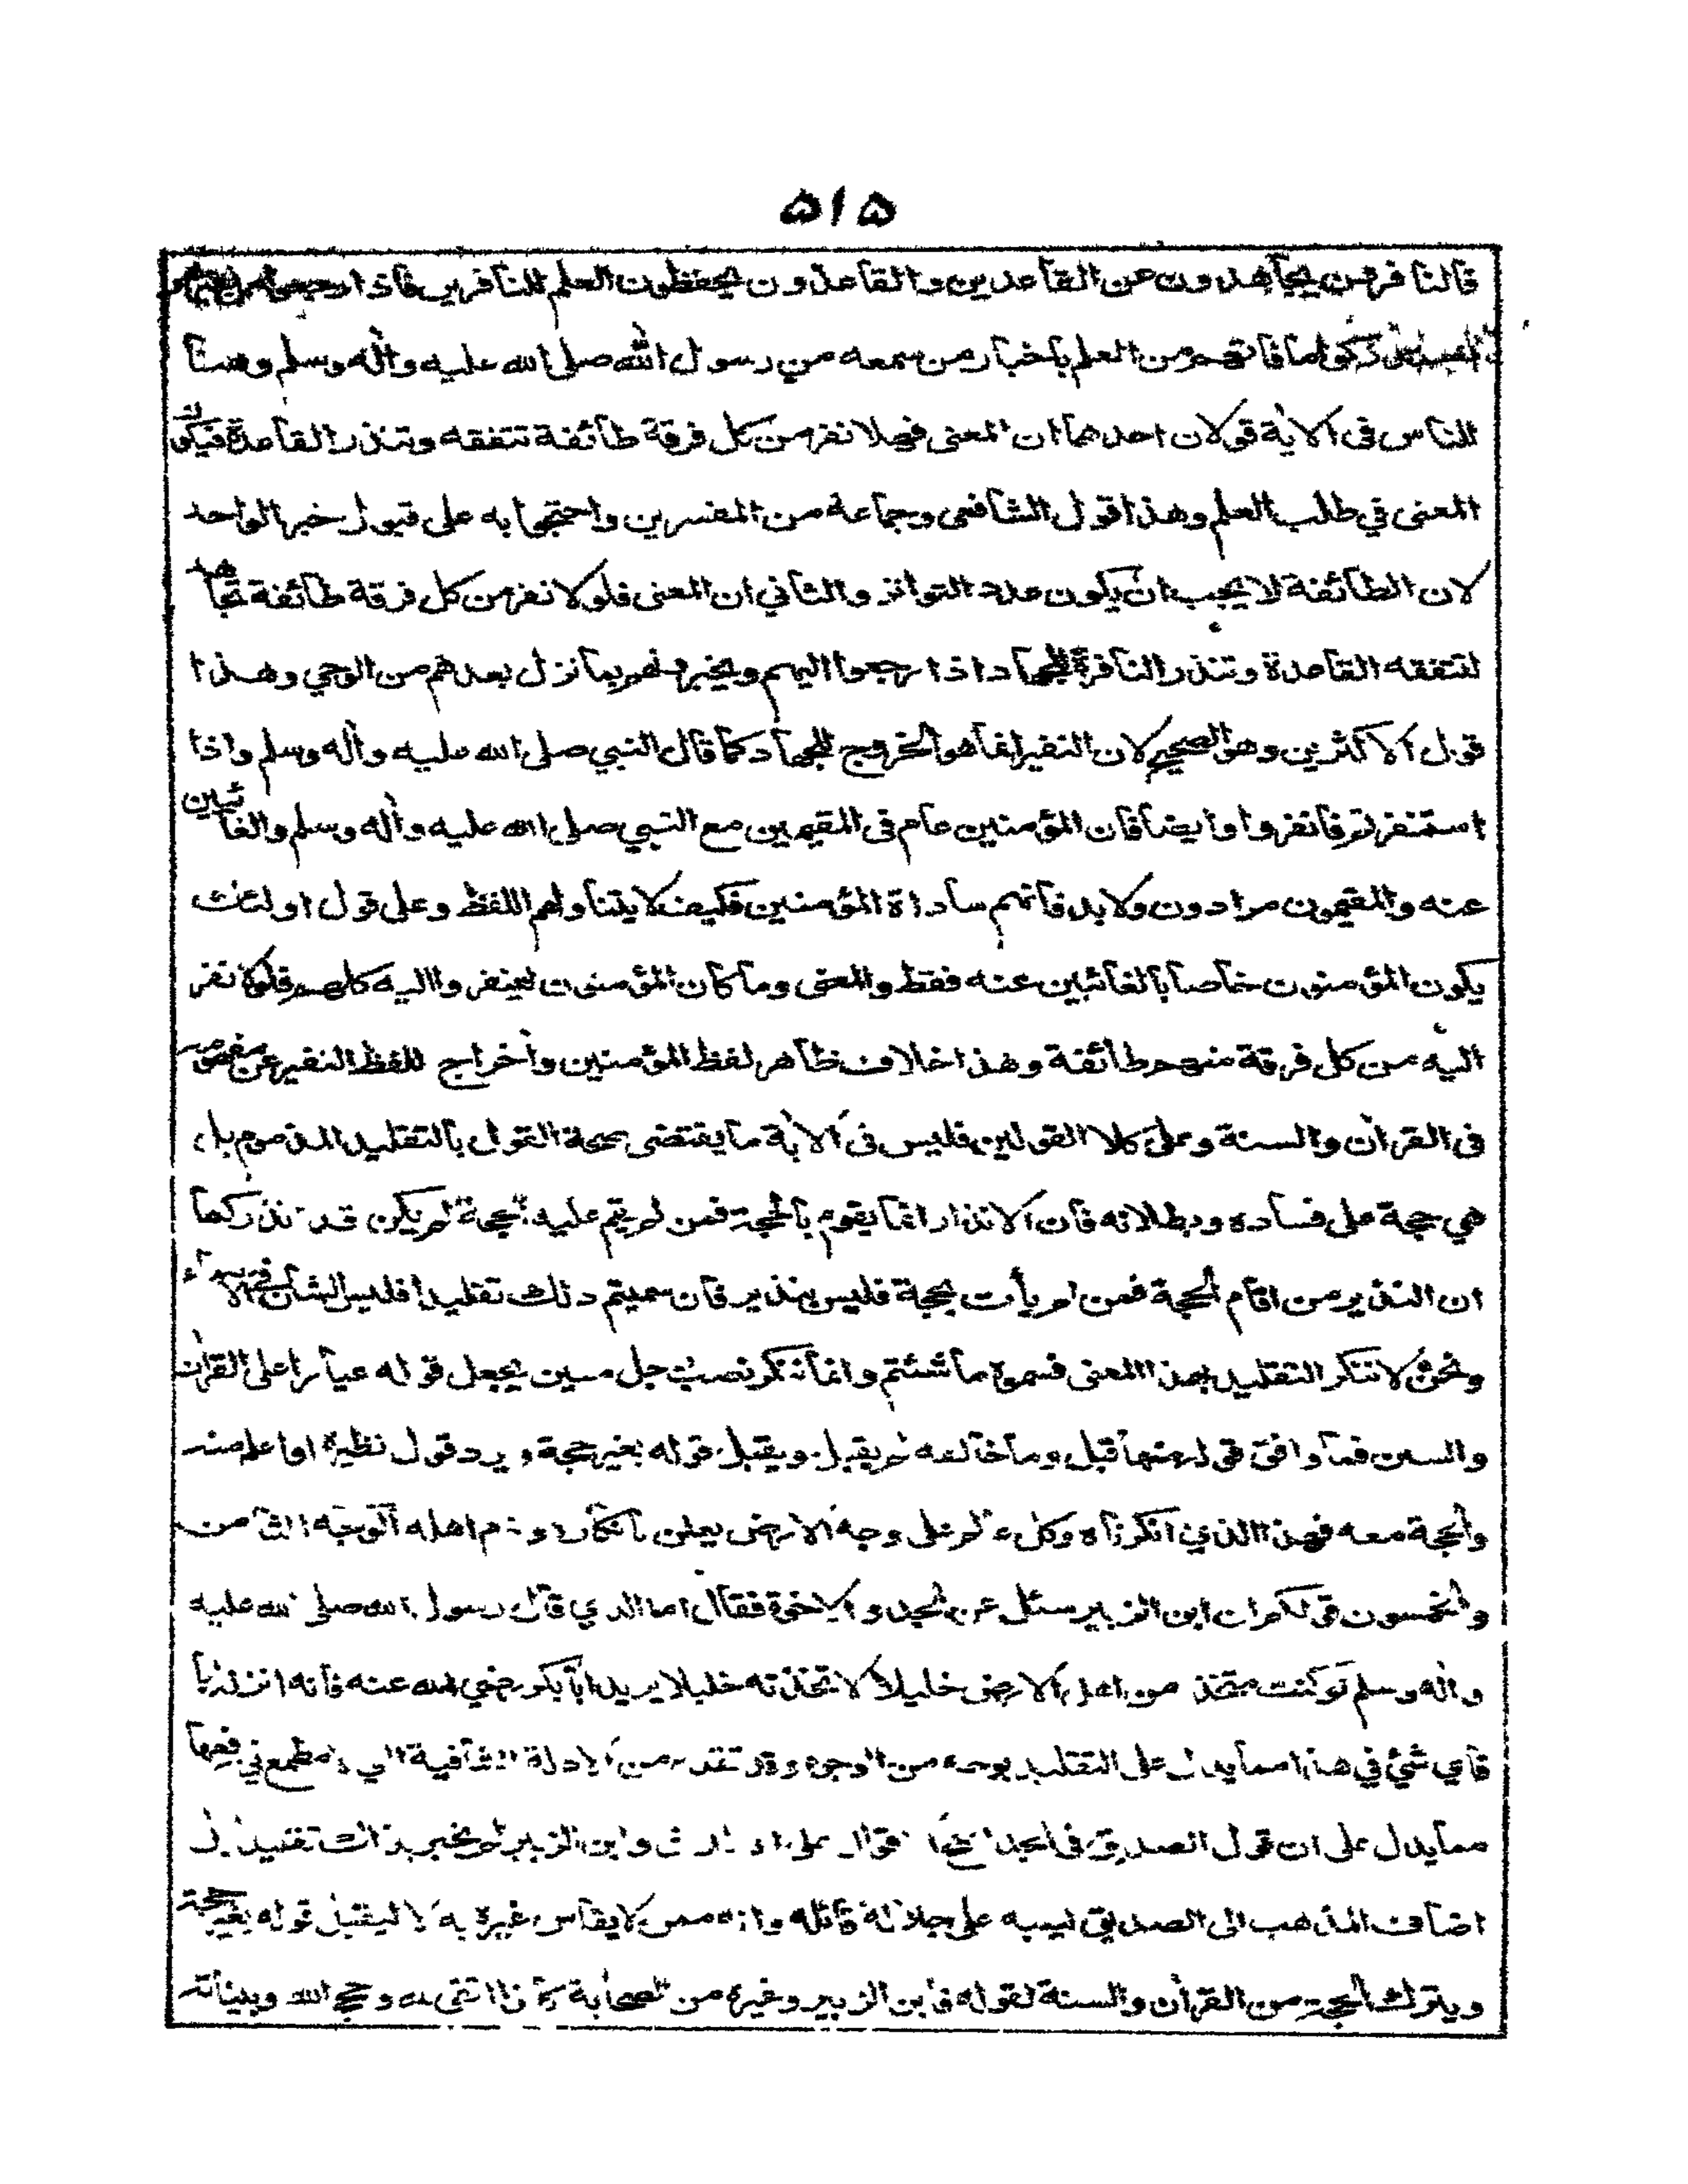 ۵۱۵
فالنافرون يجاهدون عن القاعدين والقاعدون يحفظون العلم للنافرين فاذا رجعوا من
ما فاتهم من العلم باخبار من سمعه من رسول الله صلى الله عليه واٰله وسلم وهنا
للناس فى الاية قولان احدهما ان المعنى فهلا نفر من كل فرقة طائفة تتفقه وتنذر القاعدة فيكون
المعنى في طلب العلم وهذا قول الشافعى وجماعة من المفسرين واحتجوا به على قبول خبر الواحد
لان الطائفة لا يجب ان يكون عدد التواتر والثاني ان المعنى فلولا نفر من كل فرقة طائفة تجاهد
لتتفقه القاعدة وتنذر النافرة للجهاد اذا رجعوا اليهم ويخبرونهم بما نزل بعدهم من الوحي وهذا
قول الاكثرين وهو الصحيح لان النفير انما هو الخروج للجهاد كما قال النبي صلى الله عليه واٰله وسلم واذا
استنفرتم فانفروا وايضا فان المؤمنين عام فى المقيمين مع النبي صلى الله عليه واٰله وسلم والغائبين
عنه والمقيمون مرادون ولا بد فانهم سادات المؤمنين فكيف لا يتناولهم اللفظ وعلى قول اولئك
يكون المؤمنون خاصا بالغائبين عنه فقط والمعنى وما كان المؤمنون لينفروا اليه كلهم فلولا نفر
اليه من كل فرقة منهم طائفة وهذا خلاف ظاهر لفظ المؤمنين واخراج للفظ النفير عن مفهومه
فى القراٰن والسنة وعلى كلا القولين فليس فى الاية ما يقتضى صحة القول بالتقليد المذموم بل
هي حجة على فساده وبطلانه فان الانذار انما يقوم بالحجة فمن لم يقم عليه الحجة لم يكن قد نذر كما
ان النذير من اقام الحجة فمن لم يأت بحجة فليس بنذير فان سميتم ذلك تقليدا فليس الشان فى الاسماء
ونحن لا ننكر التقليد بهذا المعنى فسموه ما شئتم وانما ننكر نصب رجل معين يجعل قوله عيارا على القراٰن
والسنن فما وافق قوله منها قبل وما خالفه لم يقبل ويقبل قوله بغير حجة ويرد قول نظيره او اعلم منه
والحجة معه فهذا الذي انكرناه وكل عالم على وجه الارض يعلن بانكاره وذم اهله الوجه الثامن
والخمسون قولكم ان ابن الزبير سئل عن الجد والاخوة فقال اما الذي قال رسول الله صلى الله عليه
واٰله وسلم لو كنت متخذا من اهل الارض خليلا لاتخذته خليلا يريد ابا بكر رضي الله عنه فانه انزله ابا
فاي شئ في هذا مما يدل على التقليد بوجه من الوجوه وقد تقدم من الادلة الشافية التي لا مطمع في دفعها
مما يدل على ان قول الصديق فى الجد اصح الاقوال على الاطلاق وابن الزبير لم يخبر بذلك تقليدا بل
اضاف المذهب الى الصديق لينبه على جلالة قائله وانه ممن لا يقاس غيره به لا ليقبل قوله بغير حجة
ويترك الحجة من القراٰن والسنة لقوله فابن الزبير وغيره من الصحابة كانوا اتقى لله وحجج الله وبيناته